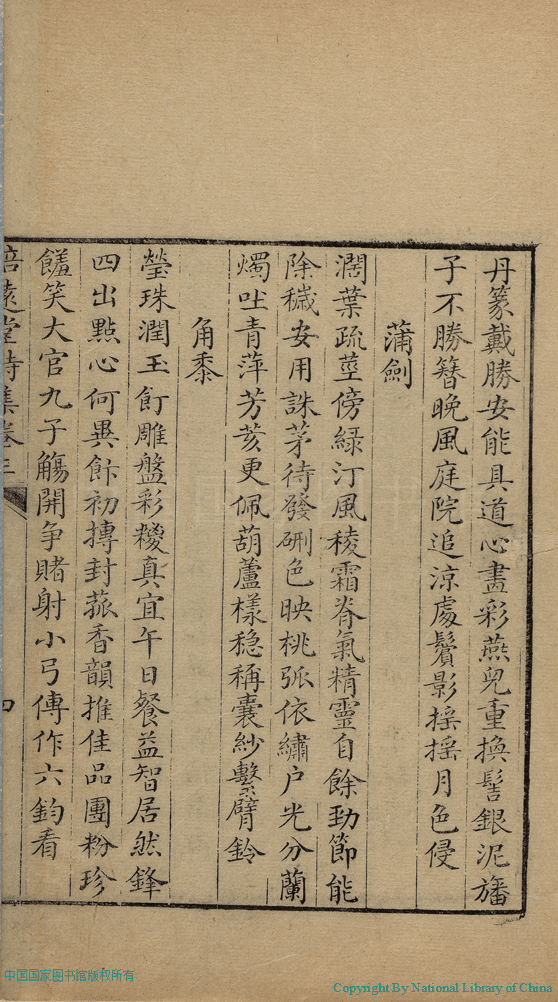 丹篆戴勝安能具道心畫彩燕兒重換髻銀泥旛
子不勝簪晚風庭院追涼處鬢影揺揺月色侵
蒲劍
濶葉疏莖傍綠汀風稜霜脊氣精靈自餘勁節能
除穢安用誅茅待發硎色映桃弧依繡户光分蘭
燭吐青萍芳荄更佩葫蘆樣稳稱囊紗繫臂鈴
角黍
瑩珠潤玉飣雕盤彩糉真宜午日餐益智居然鋒
四出點心何異飰初摶封菰香韻推佳品團粉珍
饈笑大官九子觴開争賭射小弓傳作六鈞看
培遠堂詩集卷三
四
中国国家图书馆版权所有
Copyright By National Library of China